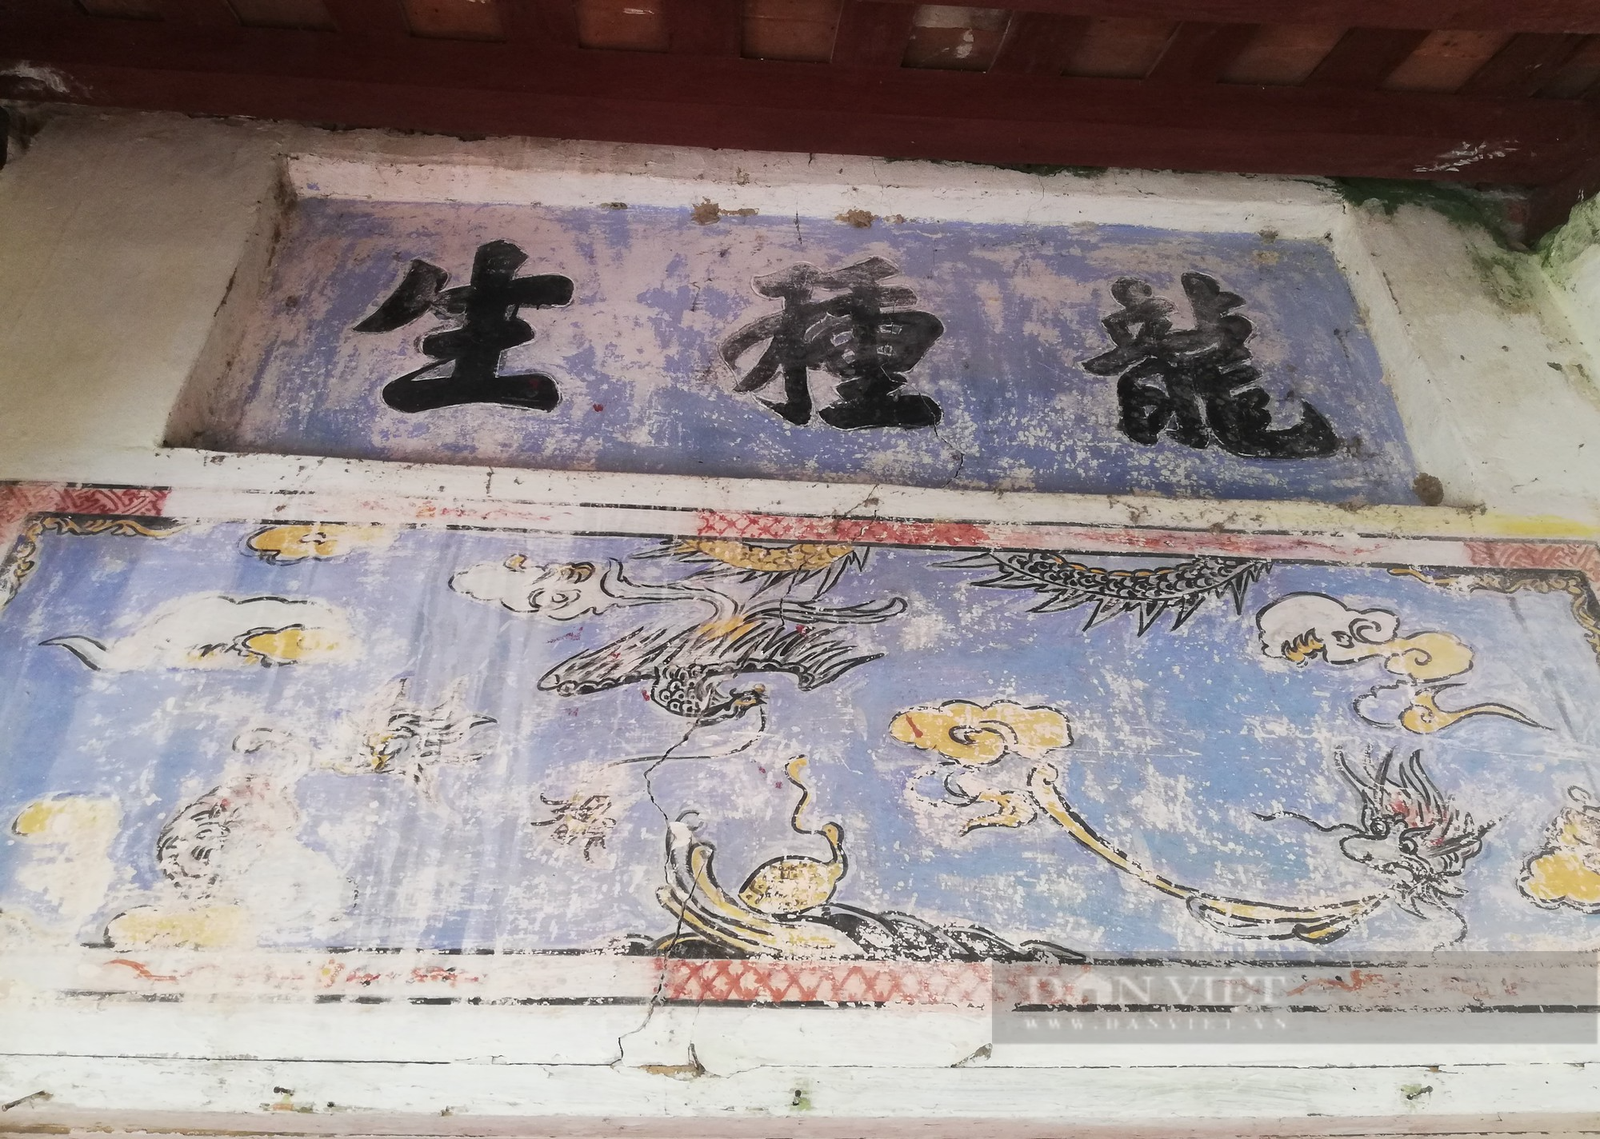 龍種生
DÂN VIỆT
WWW.DANVIET.VN